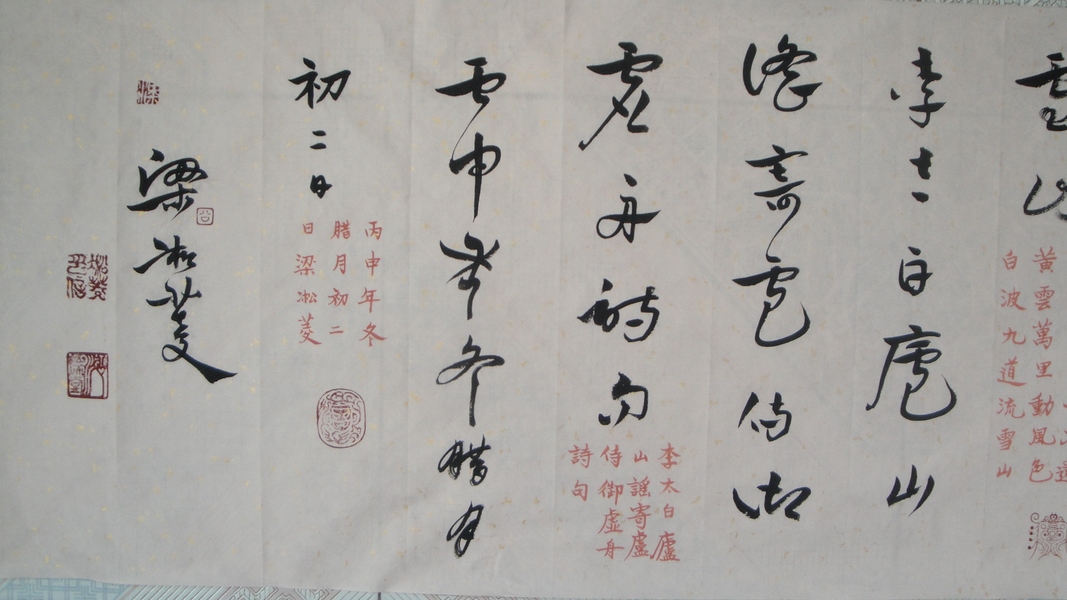 雪山
黃雲萬里動風色
白波九道流雪山
李太白廬山
謠寄盧侍御
虛舟詩句
李太白廬
山謠寄盧
侍御虛舟
詩句
丙申年冬腊月
初二日
丙申年冬
腊月初二
日梁凇菱
梁凇菱